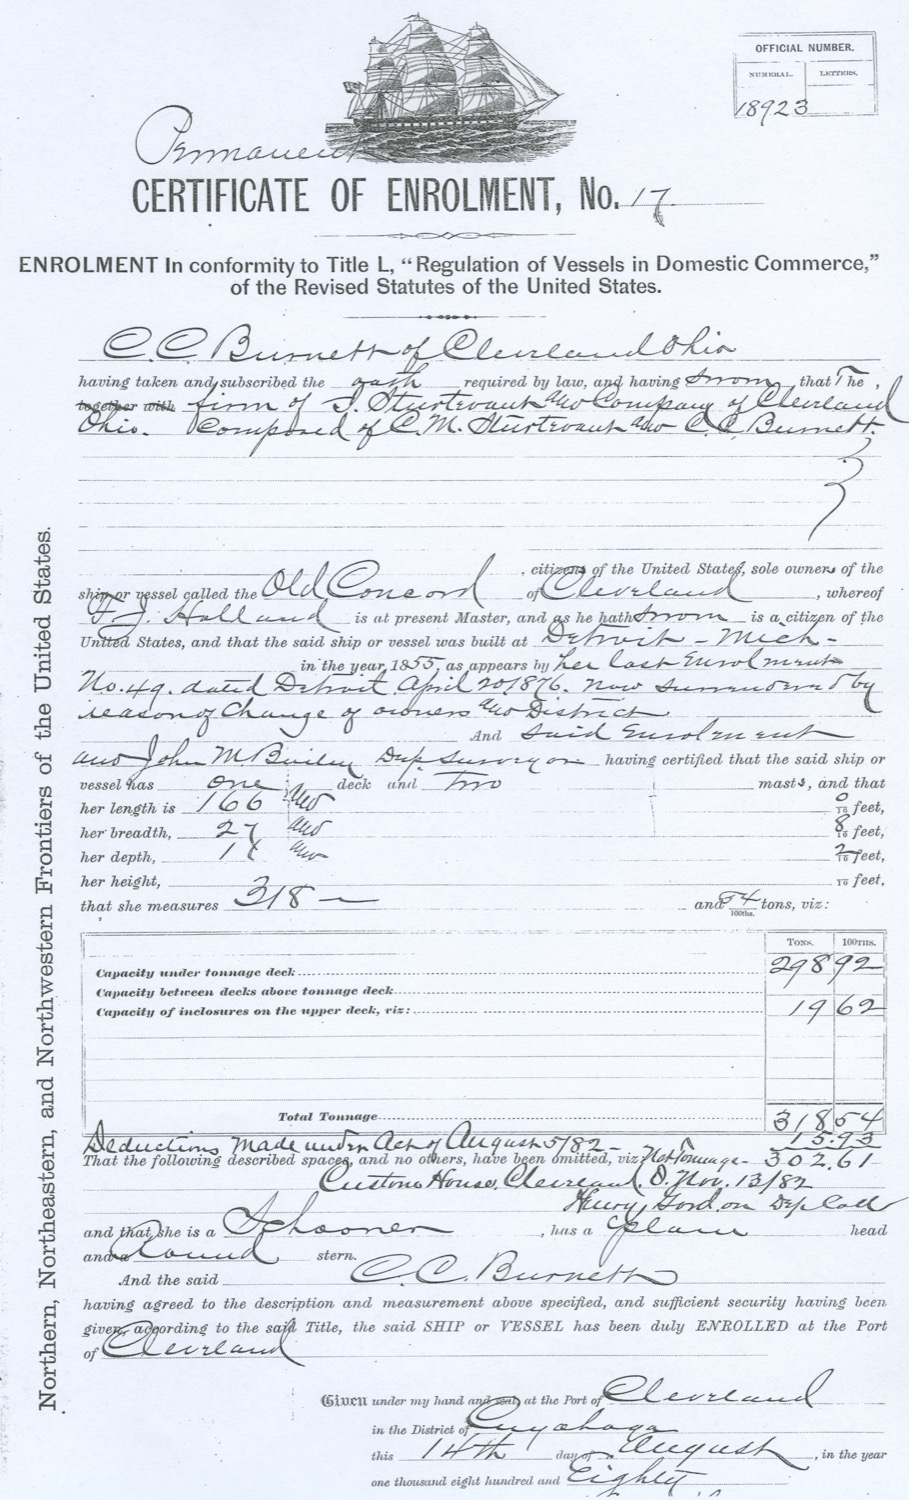 OFFICIAL NUMBER.
NUMERAL. LETTERS.
18923
Permanent
CERTIFICATE OF ENROLMENT, No. 17
ENROLMENT In conformity to Title L, “Regulation of Vessels in Domestic Commerce,”
of the Revised Statutes of the United States.
C. C. Burnett of Cleveland Ohio
having taken and subscribed the oath required by law, and having sworn that The,
together with firm of J. Sturtevant and Company of Cleveland
Ohio. Composed of C. M. Sturtevant and C. C. Burnett.
, citizens of the United States, sole owners of the
ship or vessel called the Old Concord of Cleveland, whereof
F. J. Holland is at present Master, and as he hath sworn is a citizen of the
United States, and that the said ship or vessel was built at Detroit - Mich -
in the year, 1855, as appears by her last Enrolment
No. 49. dated Detroit April 20 1876. now surrendered by
reason of Change of owners and District
And said Enrolment
and John M Dep. Surveyor having certified that the said ship or
vessel has one deck and Two masts, and that
her length is 166 and 0/10 feet,
her breadth, 27 and 8/10 feet,
her depth, and 2/10 feet,
her height, /10 feet,
that she measures 318 — and 54/100ths. tons, viz:
TONS. 100THS.
Capacity under tonnage deck 298 92
Capacity between decks above tonnage deck
Capacity of inclosures on the upper deck, viz: 19 62
Total Tonnage 318 54
Deductions made under Act of August 5/82 - 15.93
That the following described spaces, and no others, have been omitted, viz: Net Tonnage - 302.61
Customs House, Cleveland, O. Nov. 13/82
Henry Gordon Dep Coll
and that she is a Schooner, has a plain head
and a Round stern.
And the said C. C. Burnett
having agreed to the description and measurement above specified, and sufficient security having been
given, according to the said Title, the said SHIP or VESSEL has been duly ENROLLED at the Port
of Cleveland
Given under my hand and seal, at the Port of Cleveland
in the District of Cuyahoga
this 14th day of August, in the year
one thousand eight hundred and Eighty
Northern, Northeastern, and Northwestern Frontiers of the United States.